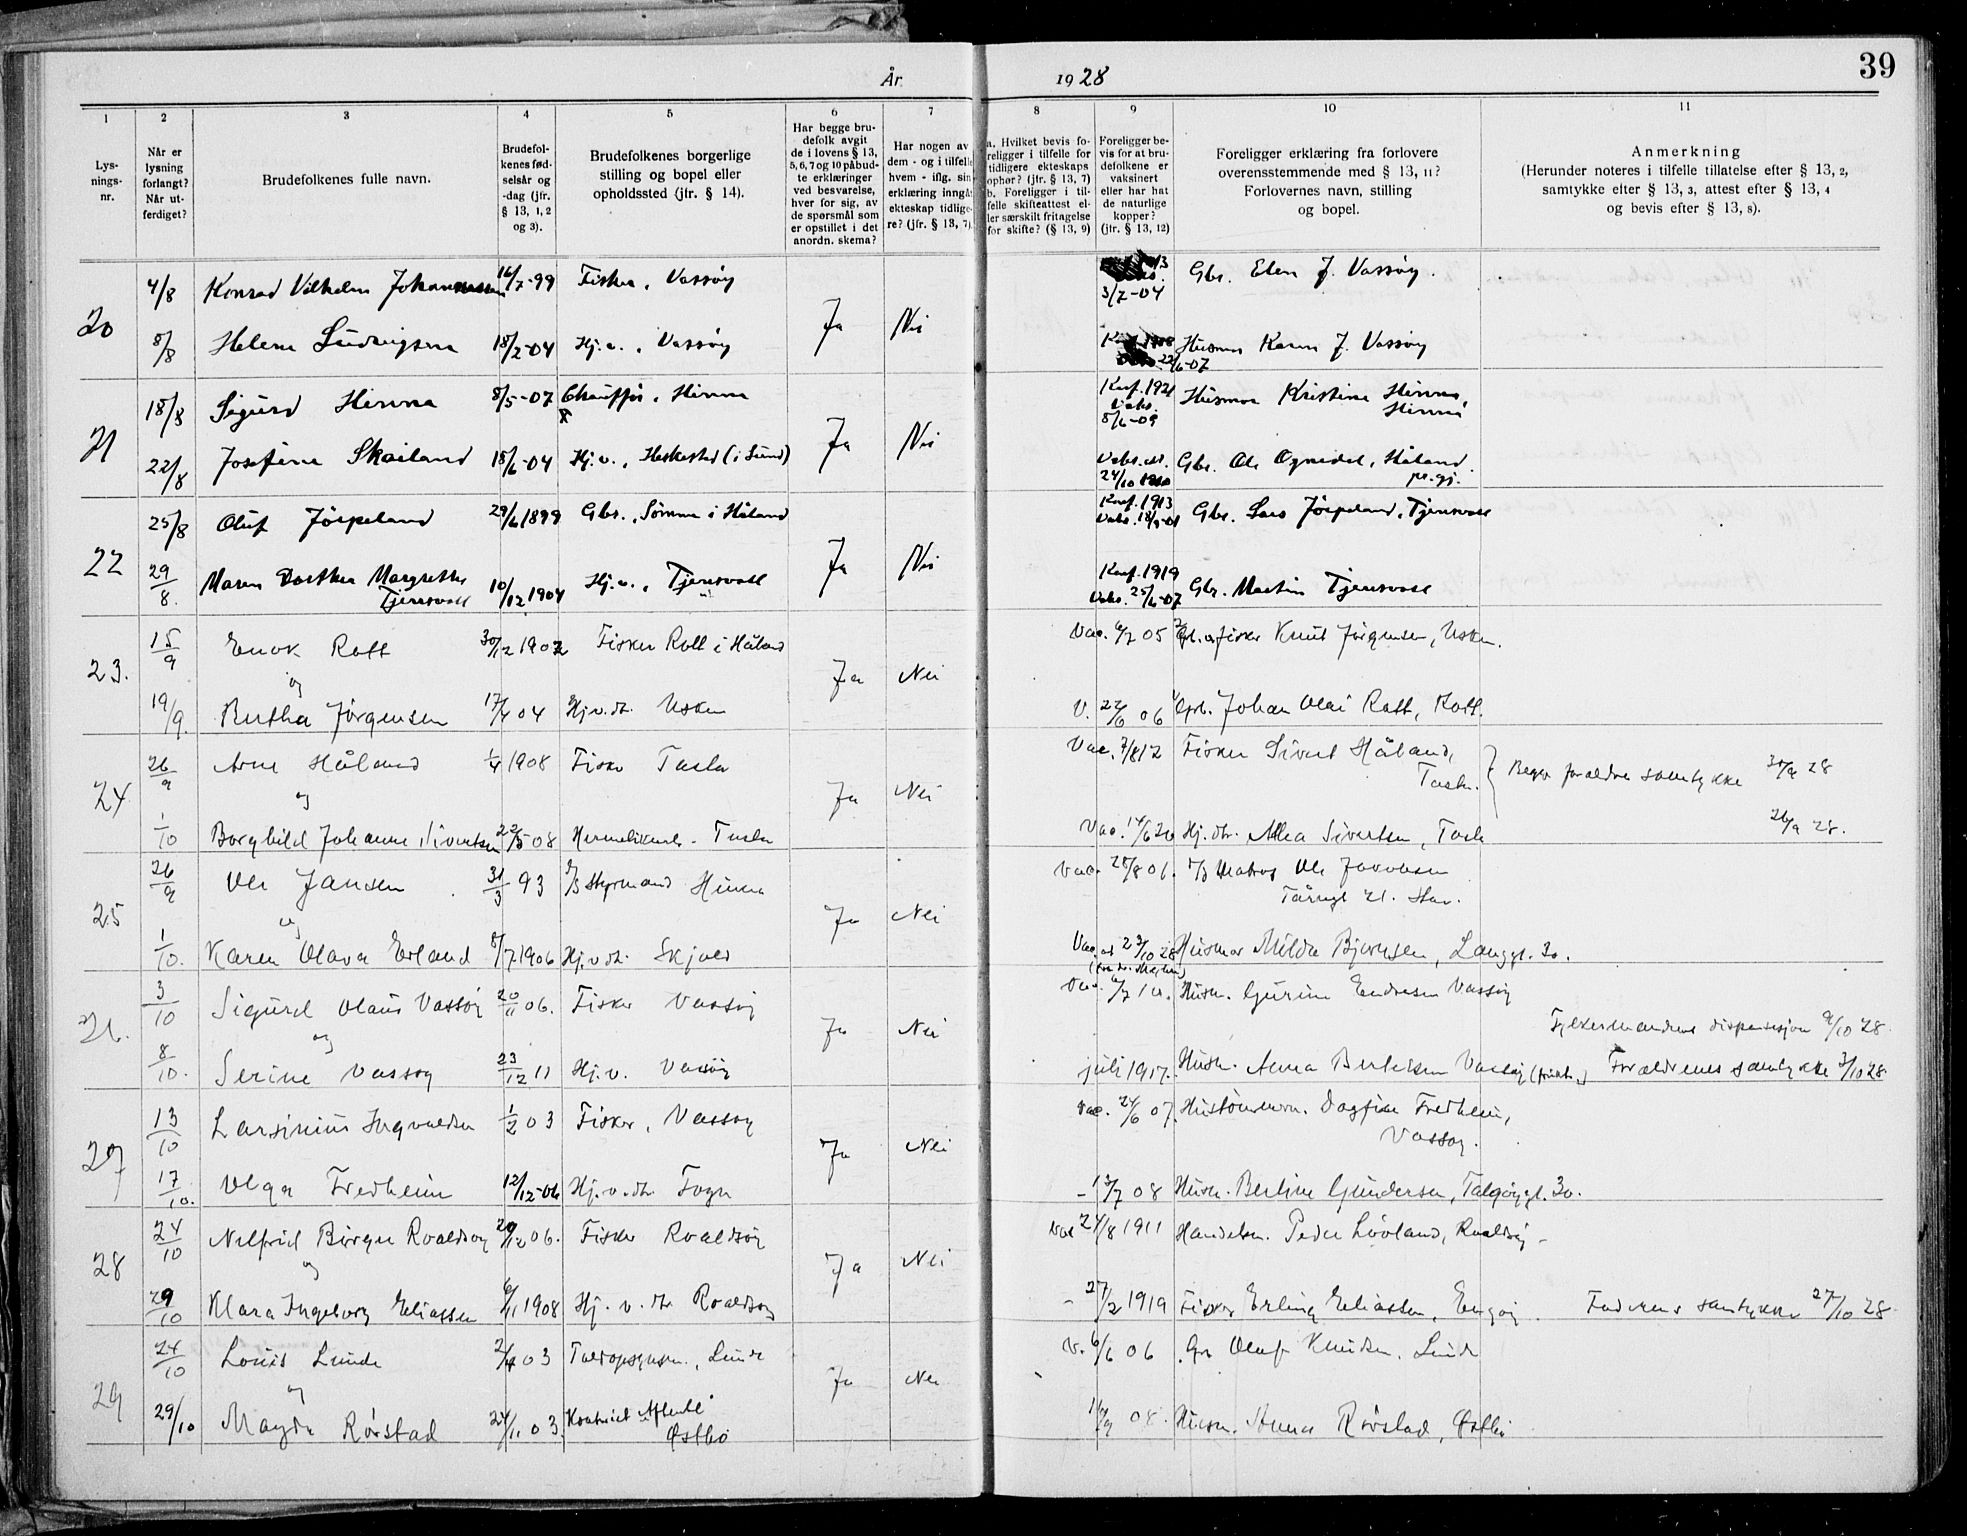 År 1928
39
1 2 3 4 5 6 7 8 9 10 11
Lys-
nings-
nr.
Når er
lysning
forlangt?
Når ut-
ferdiget?
Brudefolkenes fulle navn.
Brudefol-
kenes fød-
selsår og
-dag (jfr.
§ 13, 1, 2
og 3).
Brudefolkenes borgerlige
stilling og bopel eller
opholdssted (jfr. § 14).
Har begge bru-
defolk avgit
de i lovens § 13,
5, 6, 7 og 10 påbud-
te erklæringer
ved besvarelse,
hver for sig, av
de spørsmål som
er opstillet i det
anordn. skema?
Har nogen av
dem - og i tilfelle
hvem - iflg. sin
erklæring inngå
ekteskap tidlige-
re? (jfr. § 13, 7)
a. Hvilket bevis fo-
religger i tilfelle for
tidligere ekteskaps
ophør? (jfr. § 13, 7)
b. Foreligger i til-
felle skifteattest el-
ler særskilt fritagelse
for skifte? (§ 13, 9)
Foreligger be-
vis for at bru-
defolkene er
vaksinert
eller har hat
de naturlige
kopper?
(jfr. § 13, 12)
Foreligger erklæring fra forlovere
overensstemmende med § 13, 11?
Forlovernes navn, stilling
og bopel.
Anmerkning
(Herunder noteres i tilfelle tillatelse efter § 13, 2,
samtykke efter § 13, 3, attest efter § 13, 4
og bevis efter § 13, 8).
20 4/8 Konrad Vilhelm Johannessen 16/7-99 Fisker, Vassøy Ja Nei 3/7-04 Gbr. Elen J. Vassøy.
8/8 Helene Ludvigsen 18/2-04 Hj.v., Vassøy 22/6-07 Husmor Karen J. Vassøy
21 18/8 Sigurd Hinna 8/5-07 Chauffør, Hinna Ja Nei Konf. 1921
Vaks.
8/6-09 Husmor Kristine Hinna,
Hinna
22/8 Josefine Skailand 18/6-04 Hj.v., Heskestad (i Lund) Vaks. att.
24/10 Gbr. Ole Ognedal, Håland
pr. gj.
22 25/8 Oluf Jørpeland 29/6 1899 Gbr., Sømme i Håland Ja Nei Konf. 1913
Vaks. 18/9-01 Gbr. Lars Jørpeland, Tjensvoll
29/8. Maren Dorthea Margrethe
Tjensvoll 10/12 1904 Hj.v., Tjensvoll Konf. 1919
Vaks. 25/6-07 Gbr. Martin Tjensvoll
23. 15/9 Enok Rott 30/12 1902 Fisker Rott i Håland Ja Nei Vac. 6/7 05 Gbr. og fisker Knut Jørgensen, Usken.
og
19/9. Bertha Jørgensen 17/4 04 Hj.v.dt. Usken V. 22/6 06 Grb. Johan Olai Rott, Rott.
24 26/9 Arne Håland 1/4 1908 Fisker Tasta Ja Nei Vac. 7/8 12 Fisker Sivert Håland,
Tasta. Begge foreldres samtykke 30/9 28
og
1/10 Borghild Johanne Sivertsen 22/5 08 Hermetikarb. Tasta Vac. 14/6 20 Hj.dtr. Althea Sivertsen, Tasta 26/9 28.
25 26/9 Ole Jansen 31/3 93 Styrmand Hinna Ja Nei Vac. 28/8 06. Matros Ole Jakobsen
Tårngt 21. Stav.
og
1/10. Karen Olava Erland 8/7 1906 Hj.v.dt. Skjold Vac. att 23/10 28 Husmor Milda Bjørnsen, Langgt. 30.
26. 3/10 Sigurd Olaus Vassøy 20/11 06. Fisker Vassøy Ja Nei Vac. 6/7 10. Husm. Gurine Endresen Vassøy
og
Fylkesmandens dispensasjon 9/10 28.
8/10. Serine Vassøy 23/12 11 Hj.v. Vassøy juli 1917. Husm. Anna Berthelsen Vassøy Forældrenes samtykke 3/10 28.
27 13/10 Larsinius Ingvaldsen 1/2 03 Fisker, Vassøy Ja Nei Vac. 24/6 07. Dagfine Fredheim,
Vassøy.
17/10. Olga Fredheim 12/12-06 Hj.v.dt. Fogn - 13/7 08 Husm. Berline Gundersen, Talgøygt. 30.
28 24/10 Nilfrid Børge Roaldsøy 20/12 06. Fisker Roaldsøy Ja Nei Vac 24/8 1911 Handelsm. Peder Løvland, Roaldsøy -
og
29/10 Klara Ingeborg Eliassen 6/11 1908 Hj. v. dtr Roaldsøy - 27/2 1919 Fisker Erling Eliassen, Engøy. Faderens samtykke 27/10 28.
29 24/10 Louis Lunde 2/4 03 Taldopsynsm., Lunde Ja Nei V. 6/6 06 Gbr Olaf Knudsen, Lunde
og
29/10 Magda Rørstad 24/11 03. Kontorist Aftenbl
Østbø 08. Husm. Anna Rørstad, Østbø